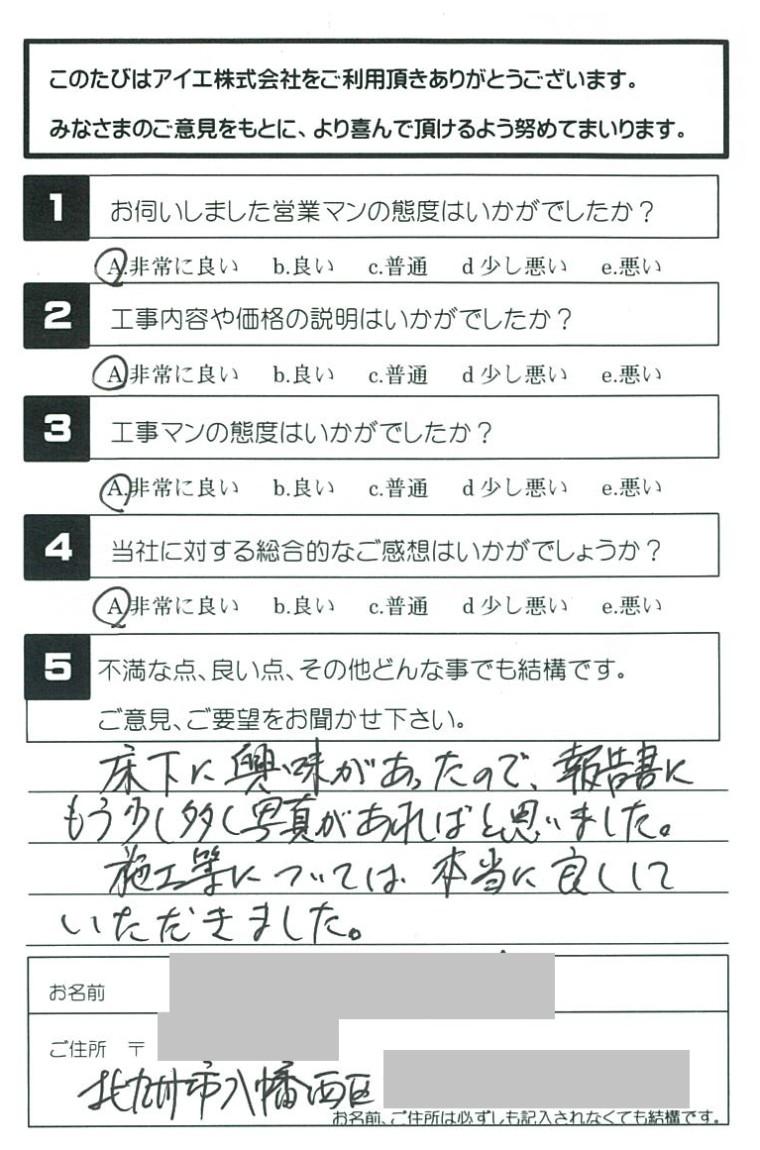 このたびはアイエ株式会社をご利用頂きありがとうございます。
みなさまのご意見をもとに、より喜んで頂けるよう努めてまいります。
1 お伺いしました営業マンの態度はいかがでしたか？
A.非常に良い b.良い c.普通 d 少し悪い e.悪い
2 工事内容や価格の説明はいかがでしたか？
A.非常に良い b.良い c.普通 d 少し悪い e.悪い
3 工事マンの態度はいかがでしたか？
A.非常に良い b.良い c.普通 d 少し悪い e.悪い
4 当社に対する総合的なご感想はいかがでしょうか？
A.非常に良い b.良い c.普通 d 少し悪い e.悪い
5 不満な点、良い点、その他どんな事でも結構です。
ご意見、ご要望をお聞かせ下さい。
床下に興味があったので、報告書に
もう少し多く写真があればと思いました。
施工等については本当に良くして
いただきました。
お名前
ご住所 〒
北九州市八幡西区
お名前、ご住所は必ずしも記入されなくても結構です。